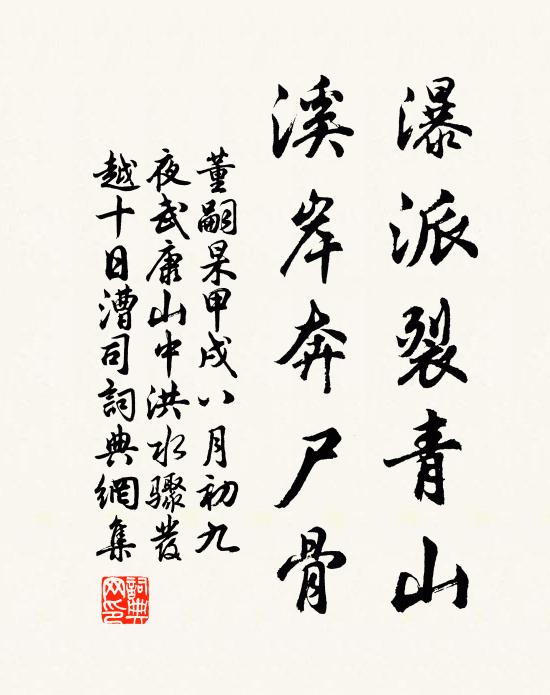 瀑派裂青山
溪岸奔尸骨
董嗣杲甲戌八月初九
夜武康山中洪水驟發
越十日漕司詞典網集
詞典网印